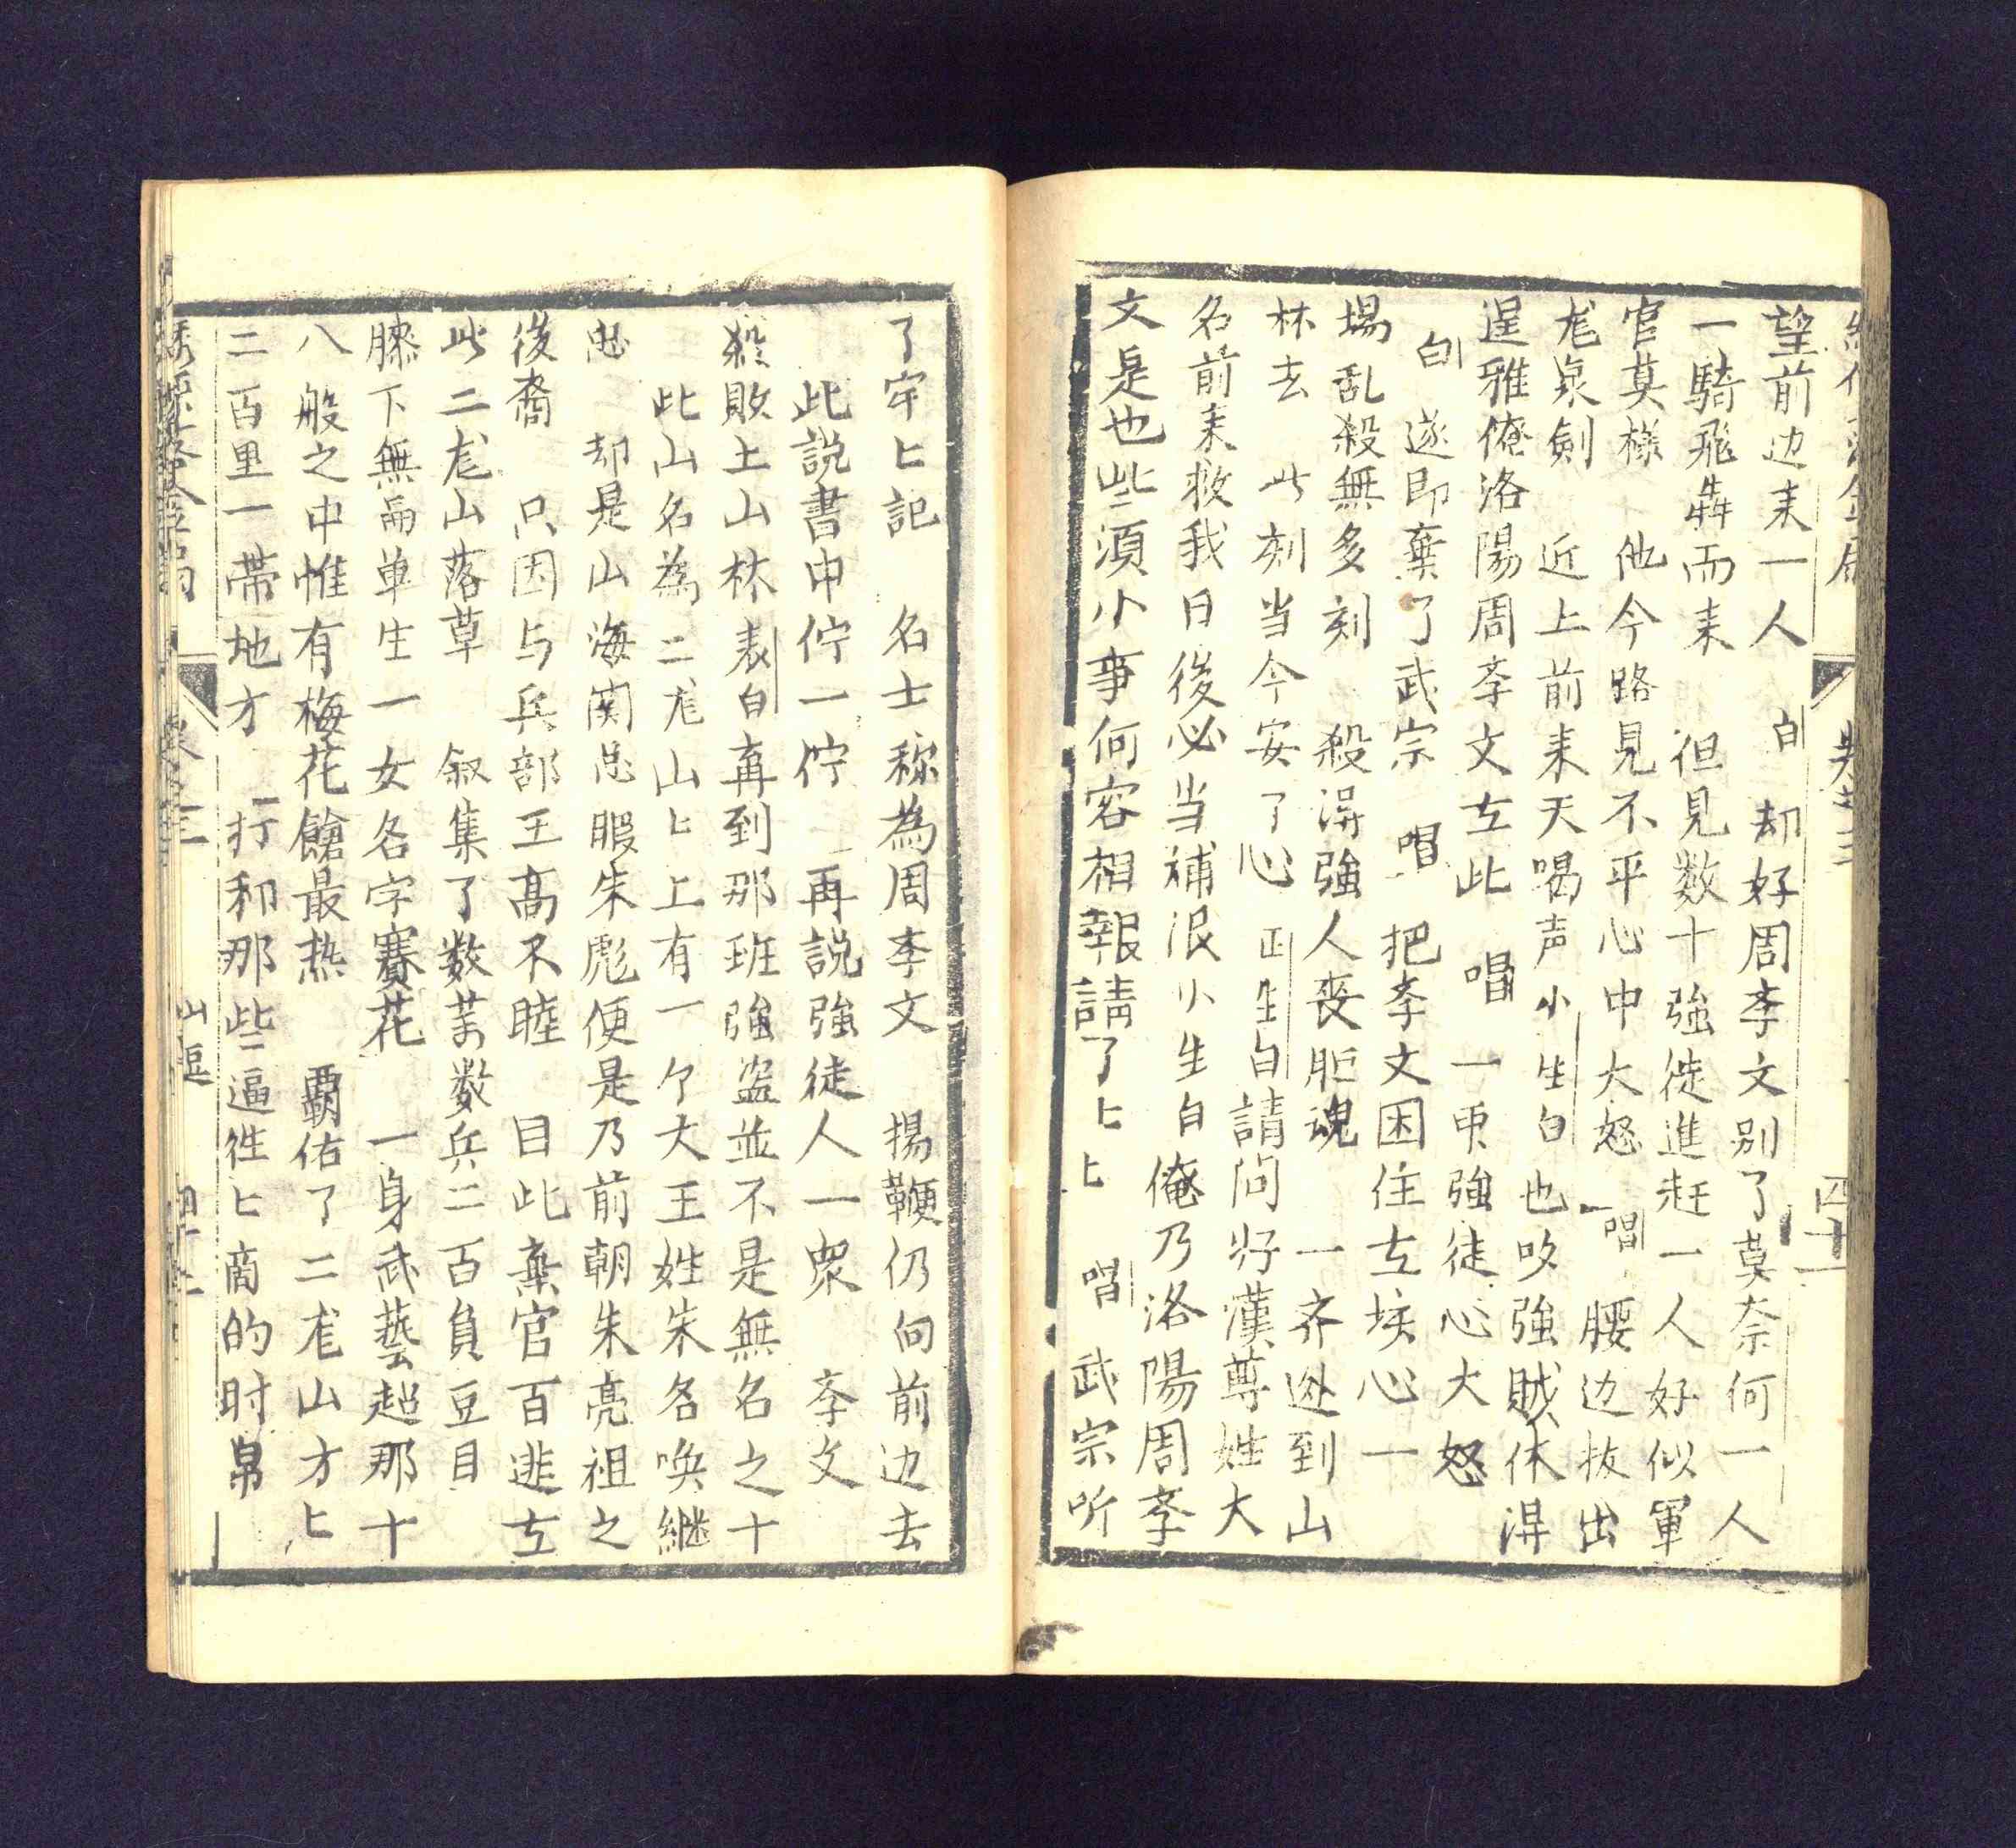 卷之三
四十一
望前边耒一人 白 却好周李文别了莫奈何一人
一騎飛犇而耒 但見数十強徒進赶一人好似軍
官莫樣 他今路見不平心中大怒 唱 腰边拔出
尨泉劍 近上前耒天喝声小生白也呔強賊休淂
逞雅俺洛陽周李文在此 唱 一更強徒心大怒
白 遂即棄了武宗 唱 把李文困住在垓心一
場乱殺無多刻 殺淂強人丧胆魂 一齐迯到山
林去 此刻当今安了心 正生白請问好漢尊姓大
名前耒救我日後必当補混小生白 俺乃洛陽周李
文是也些湏小事何容相報請了匕匕 唱 武宗听
了牢匕記 名士称為周李文 揚鞭仍向前边去
此説書中佇一佇 再説強徒人一衆 李文
殺敗土山林表白再到那班強盗並不是無名之十
此山名為二尨山匕上有一个大王姓朱名唤継
忠 却是山海関总服朱彪便是乃前朝朱亮祖之
後裔 只因与兵部王髙不睦 目此棄官百逃在
此二尨山落草 叙集了数萬数兵二百員豆目
膝下無而单生一女名字賽花 一身武藝超那十
八般之中惟有梅花鎗最热 覇佑了二尨山方匕
二百里一帯地方 打刧那些逼徃匕商的时帛